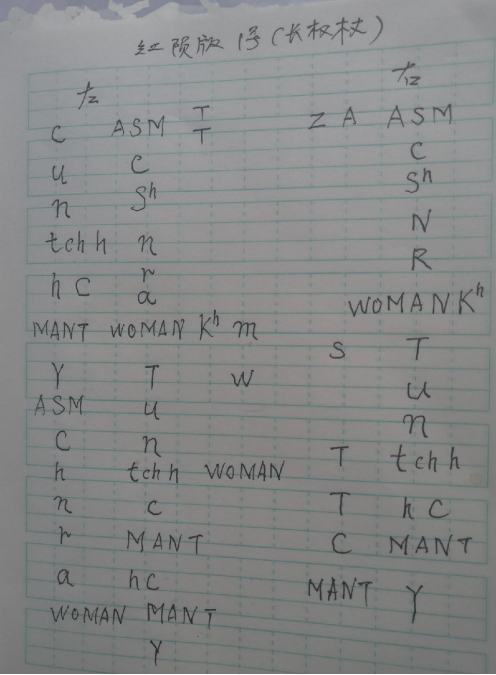 红陨版 1号(长权杖)
左 左
C ASM T Z A ASM
T
u C C
n Sh Sh
tchh n N
h C r R
a
MANT WOMAN Kh m WOMAN Kh
Y T W S T
ASM u u
C n n
h tchh WOMAN T tchh
n C T hC
r MANT C MANT
a hC MANT Y
WOMAN MANT
Y